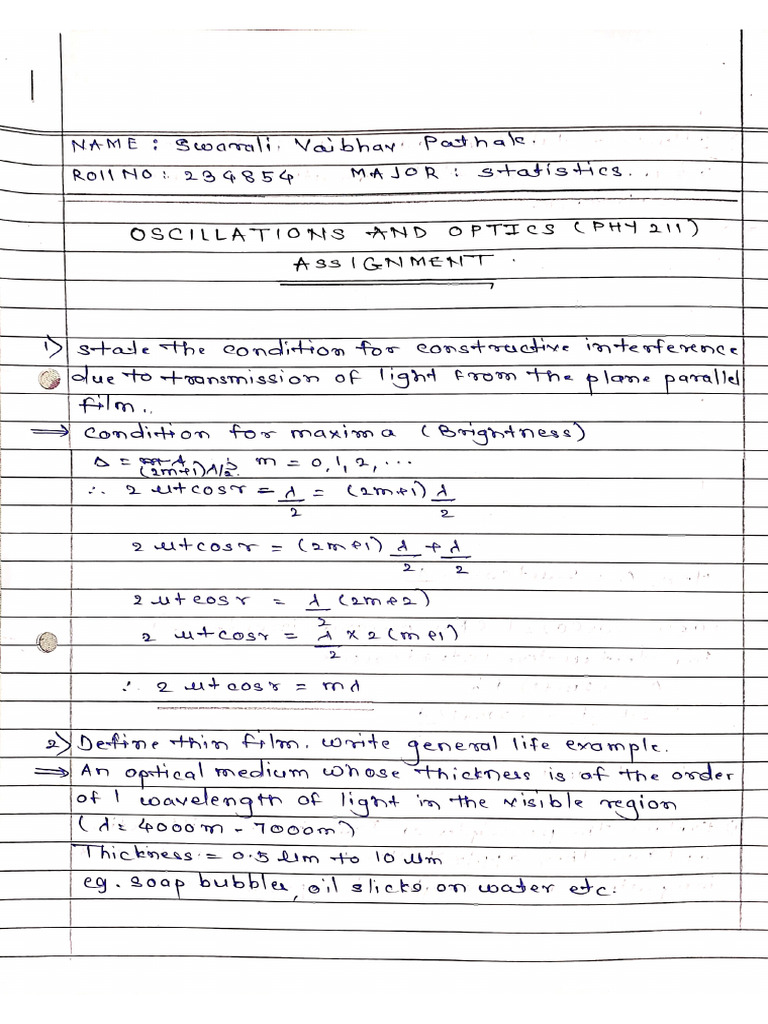 NAME : Swarali Vaibhav Pathak.
Roll NO : 234854 MAJOR : statistics..
OSCILLATIONS AND OPTICS (PHY 211)
ASSIGNMENT.
1) state the condition for constructive interference
due to transmission of light from the plane parallel
film..
⇒ condition for maxima (Brightness)
Δ = (2m+1)λ/2 ; m = 0, 1, 2, ...
∴ 2 μt cos r = λ/2 = (2m+1) λ/2
2 μt cos r = (2m+1) λ/2 + λ/2
2 μt cos r = λ/2 (2m+2)
2 μt cos r = λ/2 × 2(m+1)
∴ 2 μt cos r = mλ
2) Define thin film. write general life example.
⇒ An optical medium whose thickness is of the order
of 1 wavelength of light in the visible region
(λ = 4000m - 7000m)
Thickness = 0.5 μm to 10 μm
eg. soap bubbles, oil slicks on water etc.